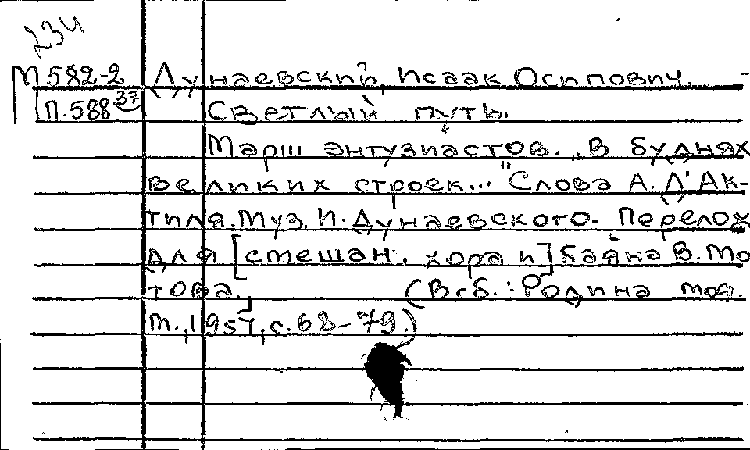 234
М 582-2 Дунаевский, Исаак Осипович.
П. 588 37 Светлый путь.
Марш энтузиастов. „В буднях
великих строек..." Слова А. Д'Ак-
тиля. Муз. И. Дунаевского. Перелож
для [смешан. хора и] баяна В. Мо
това. (В сб.: Родина моя.
М., 1957, с. 68-79.)